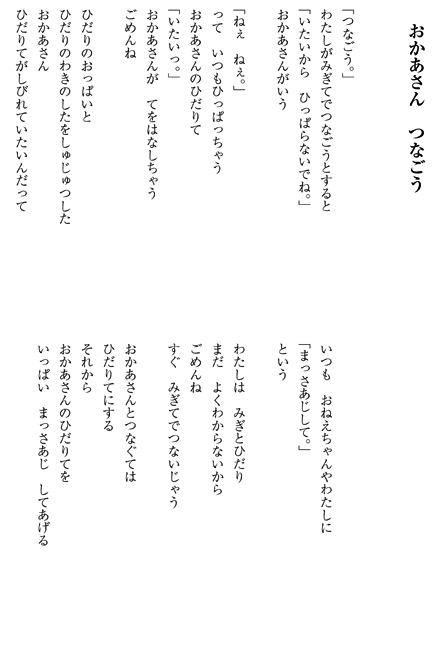 おかあさん　つなごう
「つなごう。」
わたしがみぎてでつなごうとすると
「いたいから　ひっぱらないでね。」
おかあさんがいう
「ねぇ　ねぇ。」
って　いつもひっぱっちゃう
おかあさんのひだりて
「いたいっ。」
おかあさんが　てをはなしちゃう
ごめんね
ひだりのおっぱいと
ひだりのわきのしたをしゅじゅつした
おかあさん
ひだりてがしびれていたいんだって
いつも　おねえちゃんやわたしに
「まっさあじして。」
という
わたしは　みぎとひだり
まだ　よくわからないから
ごめんね
すぐ　みぎてでつないじゃう
おかあさんとつなぐては
ひだりてにする
それから
おかあさんのひだりてを
いっぱい　まっさあじ　してあげる